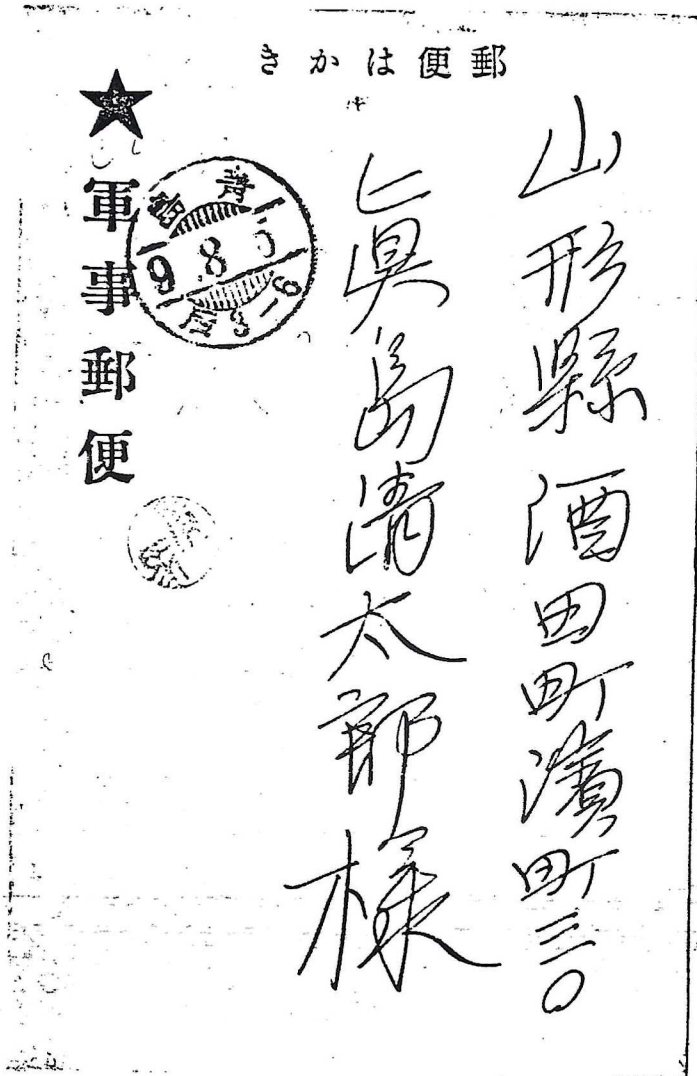 郵便はかき
山形縣酒田町濱町三〇
眞島清太郎様
★
軍事郵便
9.8.5
后3-6